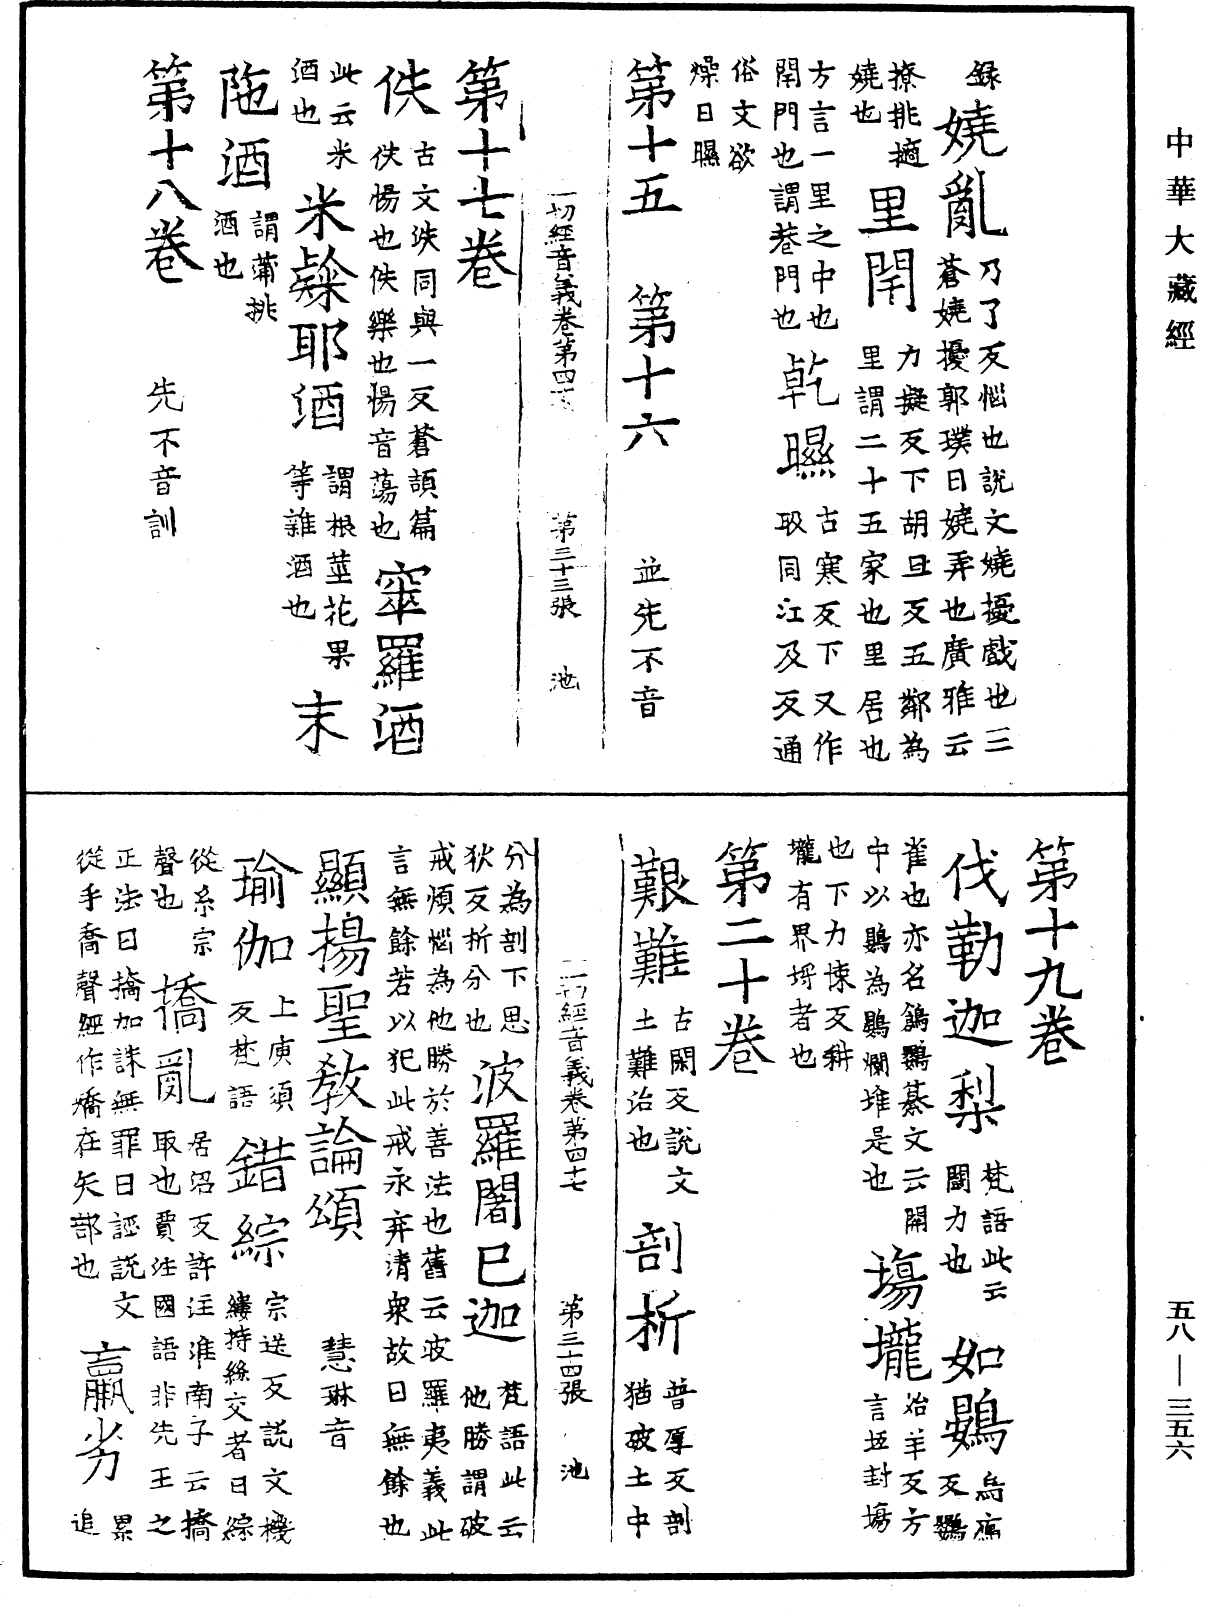 中華大藏經
錄 嬈亂 乃了反惱也說文嬈擾戲也三
蒼嬈擾郭璞曰嬈弄也廣雅云
撩挑擿
嬈也 里閈 力擬反下胡旦反五鄰為
里謂二十五家也里居也
方言一里之中也
閈門也謂巷門也 乾㬤 古寒反下又作
㽼同江及反通
俗文欲
燥曰㬤
第十五 第十六 並先不音
一切經音義卷第四十七 第三十三張 池
第十七卷
佚 古文泆同與一反蒼頡篇
佚惕也佚樂也惕音蕩也 窣羅酒
此云米
酒也 米䊝耶酒 謂根莖花果
等雜酒也 末
陁酒 謂蒲挑
酒也
第十八卷 先不音訓
第十九卷
伐勒迦梨 梵語此云
闘力也 如鷃 烏澗
反鷃
雀也亦名鴳鷃纂文云關
中以鷃為鷃爛堆是也 塲壠 治羊反方
言坻封塲
也下力悚反耕
壠有界埒者也
第二十卷
艱難 古閑反說文
土難治也 剖析 普厚反剖
猶破土中
一切經音義卷第四七 第三十四張 池
分為剖下思
狄反析分也 波羅闍巳迦 梵語此云
他勝謂破
戒煩惱為他勝於善法也舊云波羅夷義此
言無餘若以犯此戒永弃清衆故曰無餘也
顯揚聖教論頌 慧琳音
瑜伽 上庾須
反梵語 錯綜 宗送反說文機
縷持絲交者曰綜
從糸宗
聲也 撟亂 居沼反許注淮南子云撟
取也賈注國語非先王之
正法曰撟加誅無罪曰誣說文
從手喬聲經作矯在矢部也 羸劣 累
追
五八—三五六